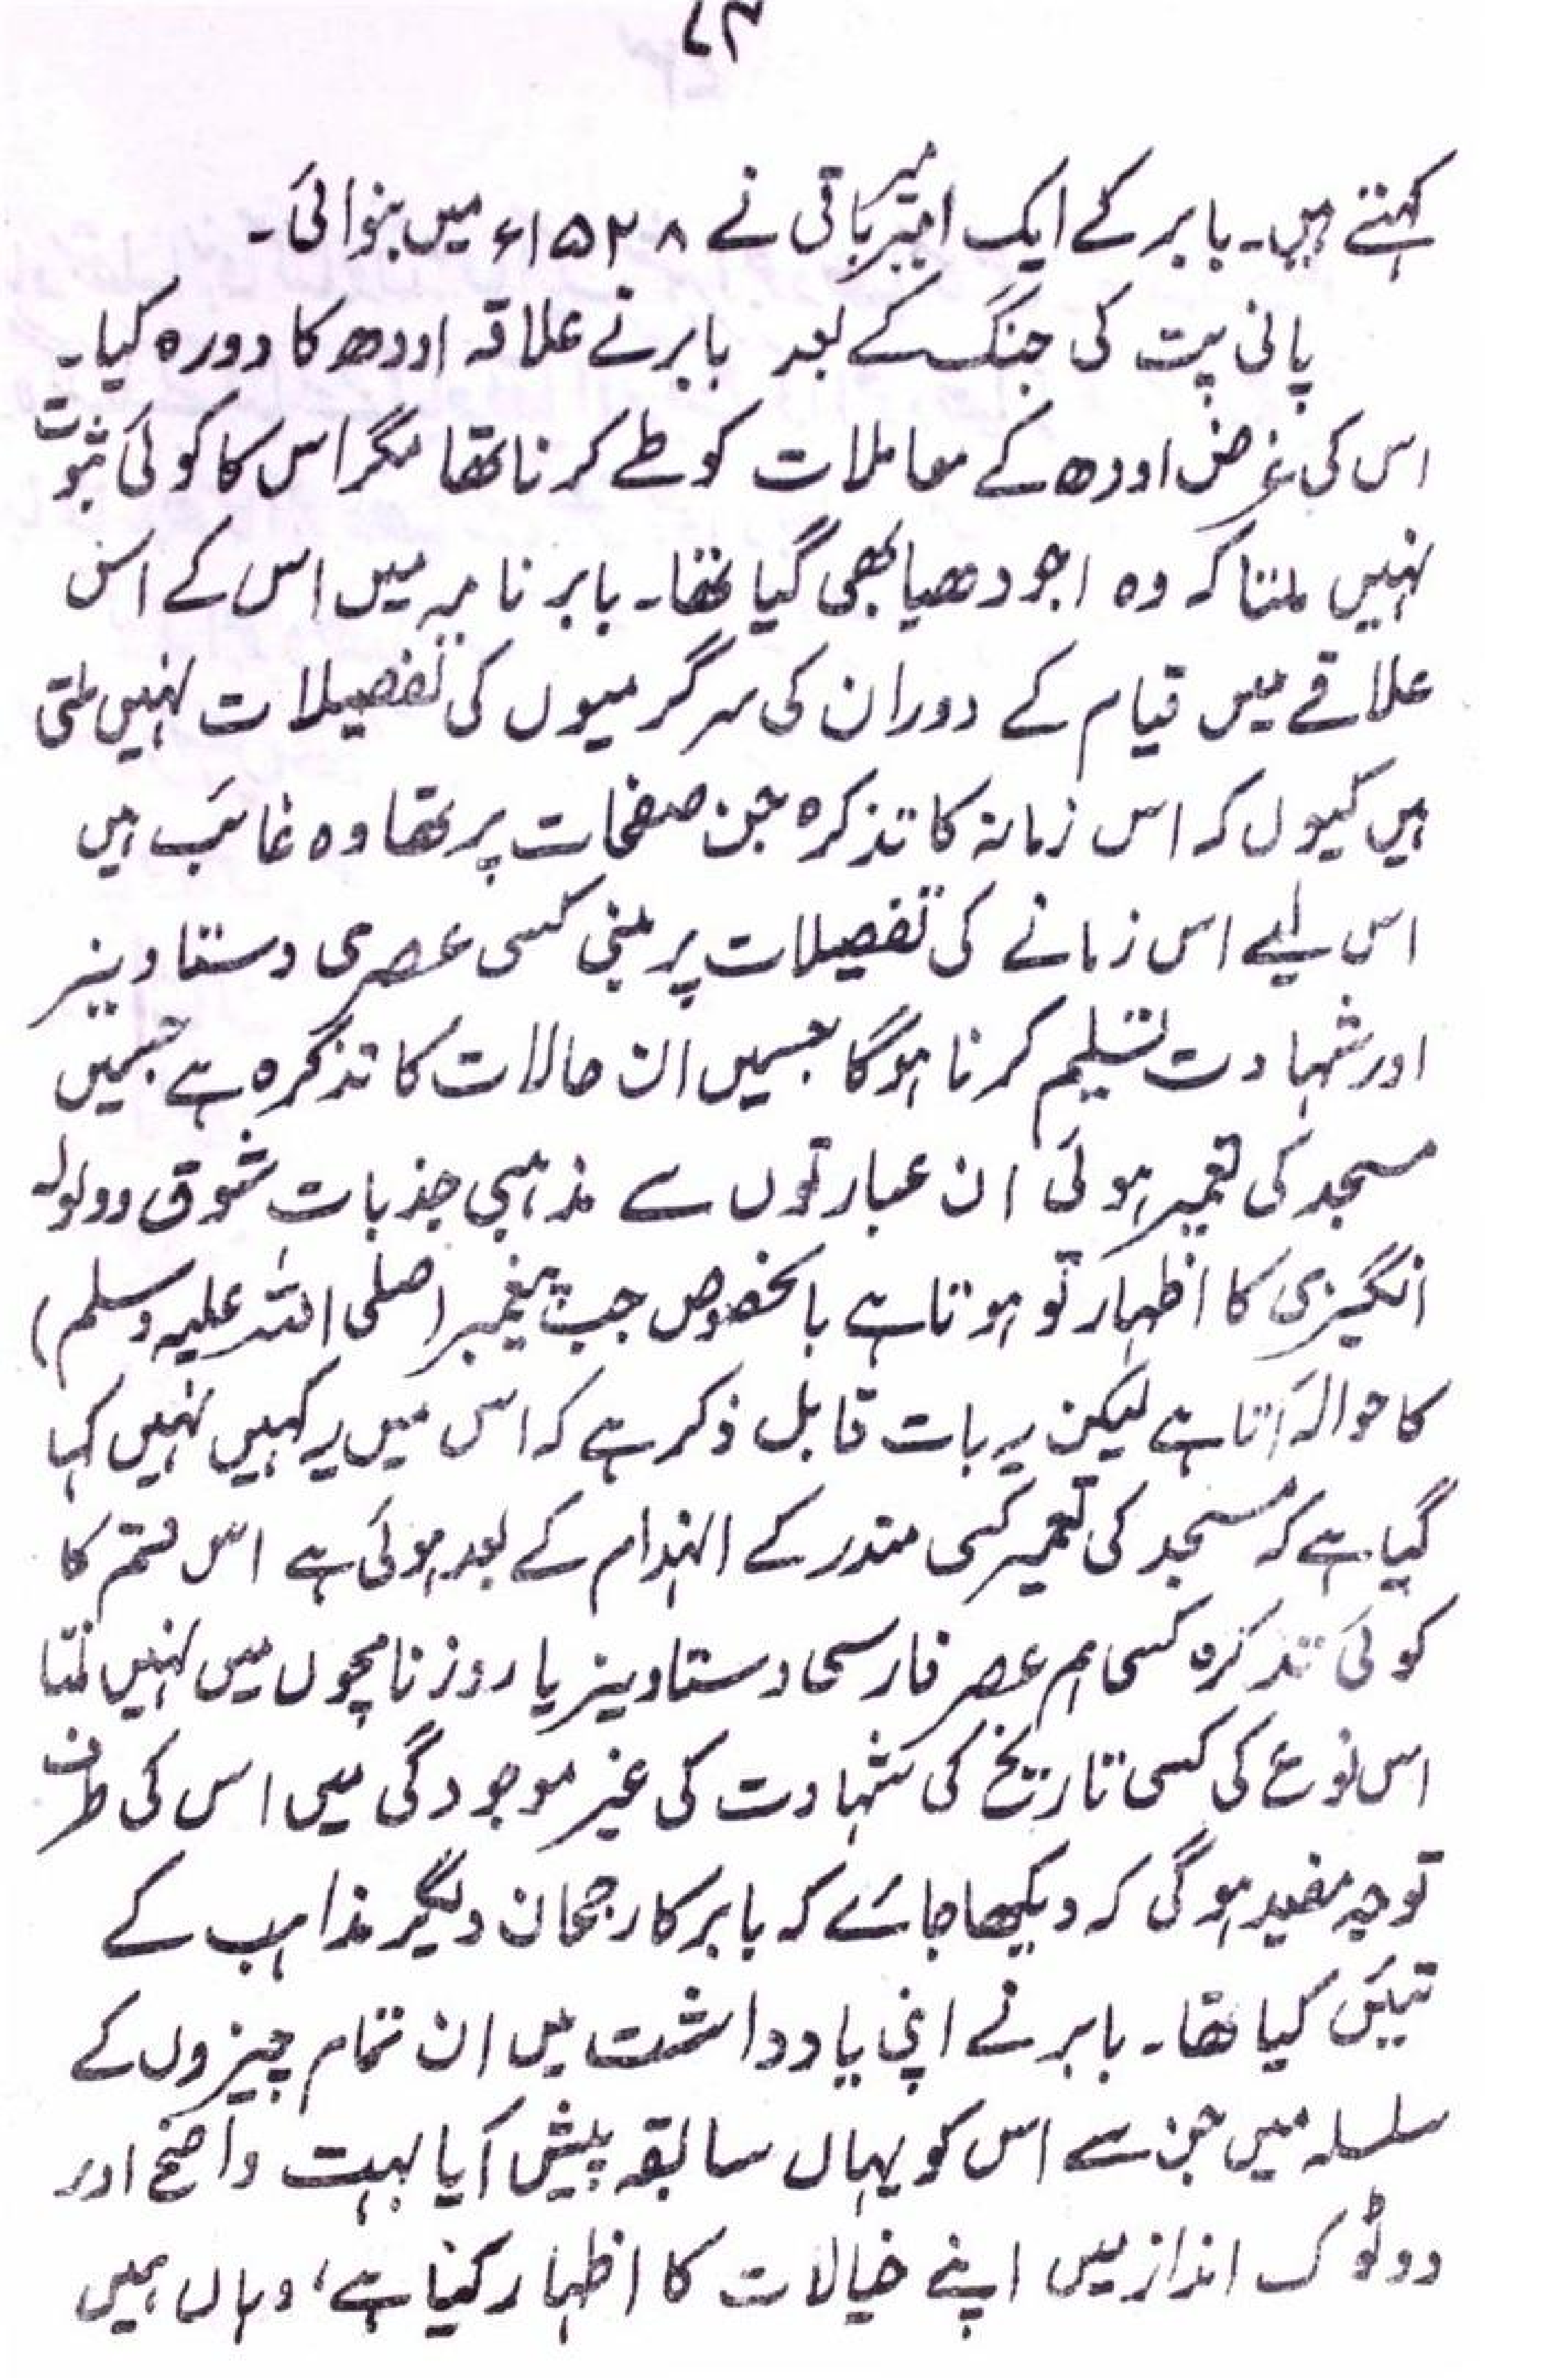 ۷۳
کہتے ہیں۔ بابر کے ایک امیر میر باقی نے ۱۵۲۸ء میں بنوائی۔
پانی پت کی جنگ کے بعد بابر نے علاقہ اودھ کا دورہ کیا۔
اس کی غرض اودھ کے معاملات کو طے کرنا تھا مگر اس کا کوئی ثبوت
نہیں ملتا کہ وہ اجودھیا بھی گیا تھا۔ بابر نامہ میں اس کے اس
علاقے میں قیام کے دوران کی سرگرمیوں کی تفصیلات نہیں ملتی
ہیں کیوں کہ اس زمانہ کا تذکرہ جن صفحات پر تھا وہ غائب ہیں
اس لیے اس زمانے کی تفصیلات پر مبنی کسی عصری دستاویز
اور شہادت تسلیم کرنا ہوگا جسمیں ان حالات کا تذکرہ ہے جسمیں
مسجد کی تعمیر ہوئی ان عبارتوں سے مذہبی جذبات شوق و ولولہ
انگیزی کا اظہار تو ہوتا ہے بالخصوص جب پیغمبر (صلی اللہ علیہ وسلم)
کا حوالہ آتا ہے لیکن یہ بات قابل ذکر ہے کہ اس میں یہ کہیں نہیں کہا
گیا ہے کہ مسجد کی تعمیر کسی مندر کے انہدام کے بعد ہوئی ہے اس قسم کا
کوئی تذکرہ کسی ہم عصر فارسی دستاویز یا روزنامچوں میں نہیں ملتا
اس نوع کی کسی تاریخ کی شہادت کی غیر موجودگی میں اس کی طرف
توجہ مفید ہوگی کہ دیکھا جائے کہ بابر کا رجحان دیگر مذاہب کے
تیئں کیا تھا۔ بابر نے اپنی یادداشت میں ان تمام چیزوں کے
سلسلہ میں جن سے اس کو یہاں سابقہ پیش آیا بہت واضح اور
دو ٹوک انداز میں اپنے خیالات کا اظہار کیا ہے، وہاں ہمیں